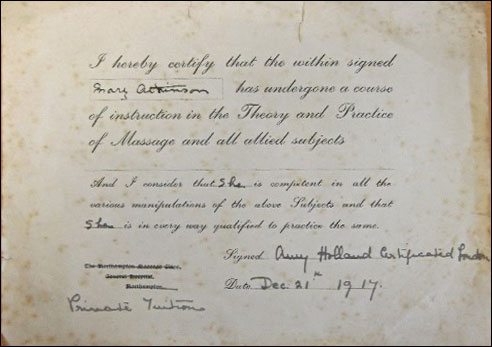 I hereby certify that the within signed
Mary Atkinson has undergone a course
of instruction in the Theory and Practice
of Massage and all allied subjects
And I consider that She is competent in all the
various manipulations of the above Subjects and that
She is in every way qualified to practice the same.
Signed Amy Holland Certificated London
The Northampton Massage
General Hospital,
Northampton.
Date Dec. 21st 1917.
Private Tuition